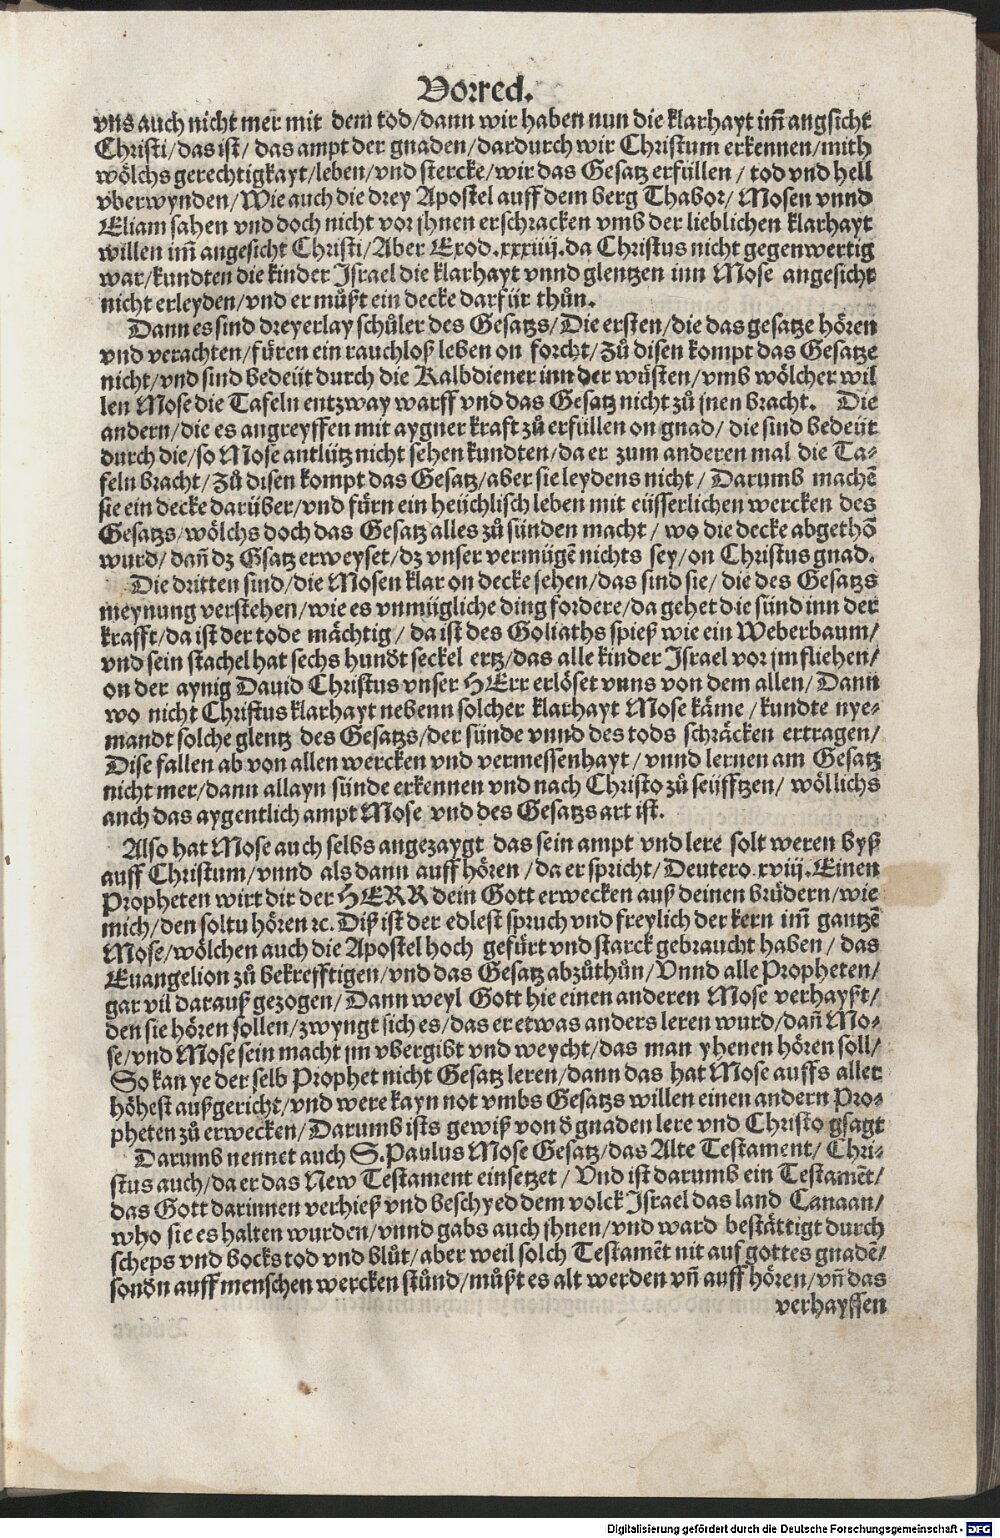 Vorred.
vns auch nicht mer mit dem tod/dann wir haben nun die klarhayt im̄ angsicht
Christi/das ist/ das ampt der gnaden/dardurch wir Christum erkennen/mith
wölchs gerechtigkayt/leben/vnd stercke/wir das Gesatz erfüllen/ tod vnd hell
vberwynden/Wie auch die drey Apostel auff dem berg Thabor/ Mosen vnnd
Eliam sahen vnd doch nicht vor jhnen erschracken vmb der lieblichen klarhayt
willen im̄ angesicht Christi/Aber Exod.xxxiiij.da Christus nicht gegenwertig
war/kundten die kinder Jsrael die klarhayt vnnd glentzen inn Mose angesicht
nicht erleyden/vnd er müßt ein decke darfür thůn.
Dann es sind dreyerlay schůler des Gesatzs/Die ersten/die das gesatze hören
vnd verachten/füren ein rauchloß leben on forcht/Zů disen kompt das Gesatze
nicht/vnd sind bedeüt durch die Kalbdiener inn der wüsten/vmb wölcher wil
len Mose die Tafeln entzway warff vnd das Gesatz nicht zů jnen bracht. Die
andern/die es angreyffen mit aygner kraft zů erfüllen on gnad/ die sind bedeüt
durch die/so Mose antlütz nicht sehen kundten/da er zum anderen mal die Ta⸗
feln bracht/Zů disen kompt das Gesatz/aber sie leydens nicht/ Darumb machē
sie ein decke darüber/vnd fürn ein heüchlisch leben mit eüsserlichen wercken des
Gesatzs/wölchs doch das Gesatz alles zů sünden macht/ wo die decke abgethō
wurd/ dañ dz Gsatz erweyset/dz vnser vermügē nichts sey/on Christus gnad.
Die dritten sind/die Mosen klar on decke sehen/das sind sie/ die des Gesatzs
meynung verstehen/wie es vnmügliche ding fordere/da gehet die sünd inn der
krafft/da ist der tode mächtig/ da ist des Goliaths spieß wie ein Weberbaum/
vnd sein stachel hat sechs hundt̄ seckel ertz/das alle kinder Jsrael vor jm fliehen/
on der aynig Dauid Christus vnser HErr erlöset vnns von dem allen/ Dann
wo nicht Christus klarhayt nebenn solcher klarhayt Mose käme/kundte nye⸗
mandt solche glentz des Gesatzs/der sünde vnnd des tods schräcken ertragen/
Dise fallen ab von allen wercken vnd vermessenhayt/ vnnd lernen am Gesatz
nicht mer/dann allayn sünde erkennen vnd nach Christo zů seüfftzen/ wöllichs
anch das aygentlich ampt Mose vnd des Gesatzs art ist.
Also hat Mose auch selbs angezaygt das sein ampt vnd lere solt weren byß
auff Christum/vnnd als dann auff hören/da er spricht/Deutero.xviij.Einen
Propheten wirt dir der HERR dein Gott erwecken auß deinen brüdern/wie
mich/den soltu hören ꝛc. Diß ist der edlest spruch vnd freylich der kern im̄ gantzē
Mose/wölchen auch die Apostel hoch gefürt vnd starck gebraucht haben/ das
Euangelion zů bekrefftigen/vnd das Gesatz abzůthůn/Vnnd alle Propheten/
gar vil darauß gezogen/Dann weyl Gott hie einen anderen Mose verhayßt/
den sie hören sollen/zwyngt sich es/das er etwas anders leren wurd/dañ Mo⸗
se/vnd Mose sein macht jm vbergibt vnd weycht/das man yhenen hören soll/
So kan ye der selb Prophet nicht Gesatz leren/dann das hat Mose auffs aller
höhest außgericht/vnd were kayn not vmbs Gesatzs willen einen andern Pro⸗
pheten zů erwecken/Darumb ists gewiß von d̄ gnaden lere vnd Christo gsagt
Darumb nennet auch S.Paulus Mose Gesatz/das Alte Testament/ Chri⸗
stus auch/da er das New Testament einsetzet/ Vnd ist darumb ein Testamēt/
das Gott darinnen verhieß vnd beschyed dem volck Jsrael das land Canaan/
who sie es halten wurden/vnnd gabs auch jhnen/vnd ward bestättigt durch
scheps vnd bocks tod vnd blůt/aber weil solch Testamēt nit auf gottes gnadē/
sond̄n auff menschen wercken stůnd/můßt es alt werden vñ auff hören/vñ das
verhayssen
Digitalisierung gefördert durch die Deutsche Forschungsgemeinschaft - DFG